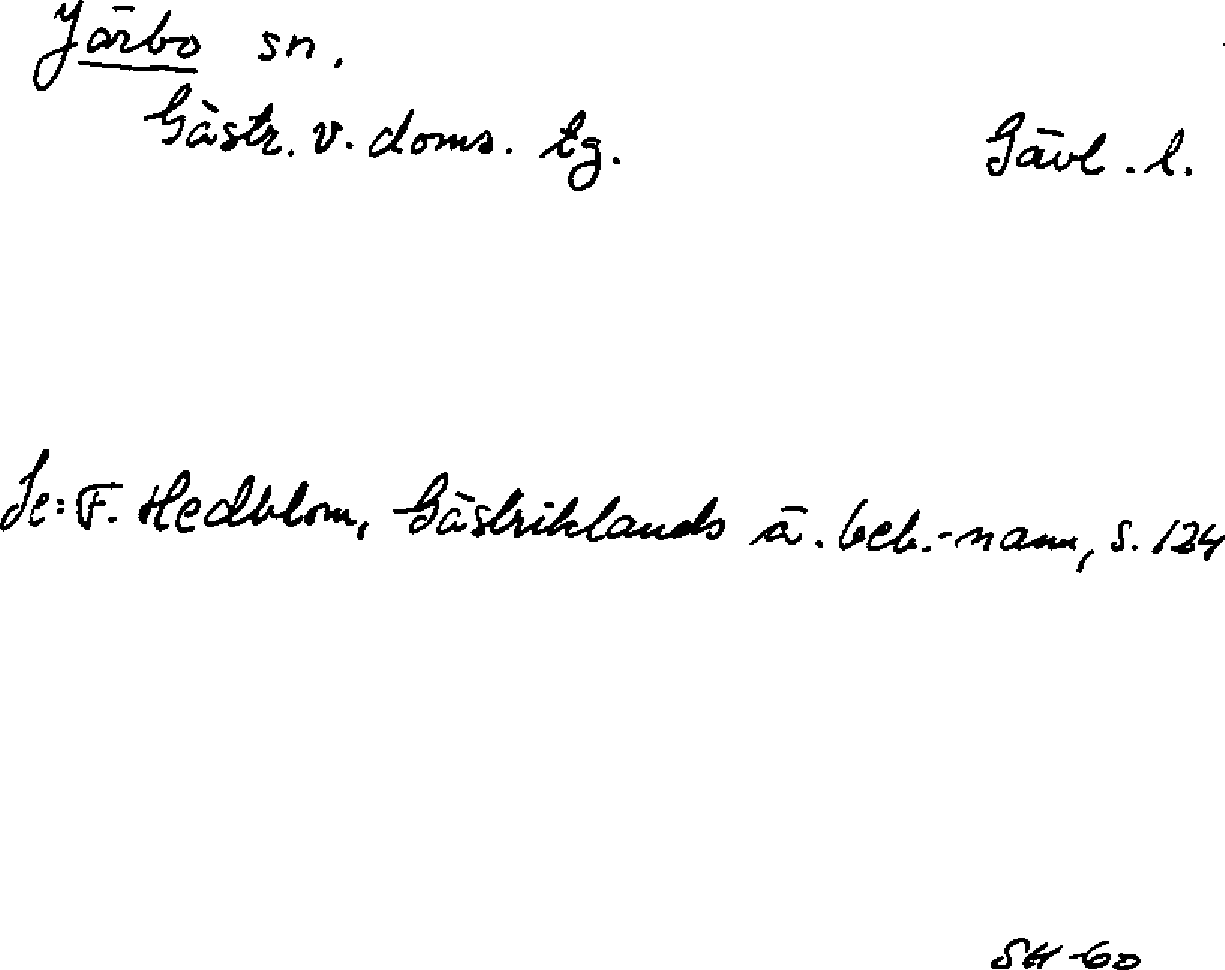 Järbo sn.
Gästr. v. doms. tg. Gävl. l.
Se: F. Hedblom, Gästriklands ä. beb.-namn, s. 124
SH -60